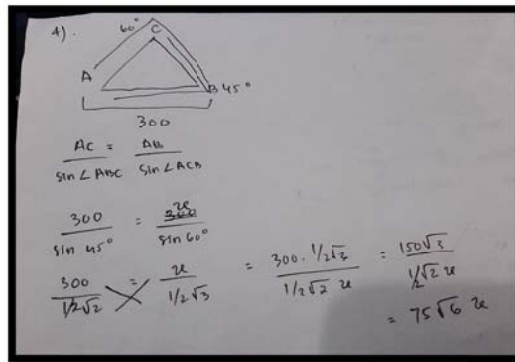 4).
60°
C
A
B 45°
300
AC / sin∠ABC = AB / sin∠ACB
300 / sin 45° = x / sin 60°
300 / 1/2√2 = x / 1/2√3 = 300 · 1/2√3 / 1/2√2 x = 150√3 / 1/2√2 x
= 75√6 x